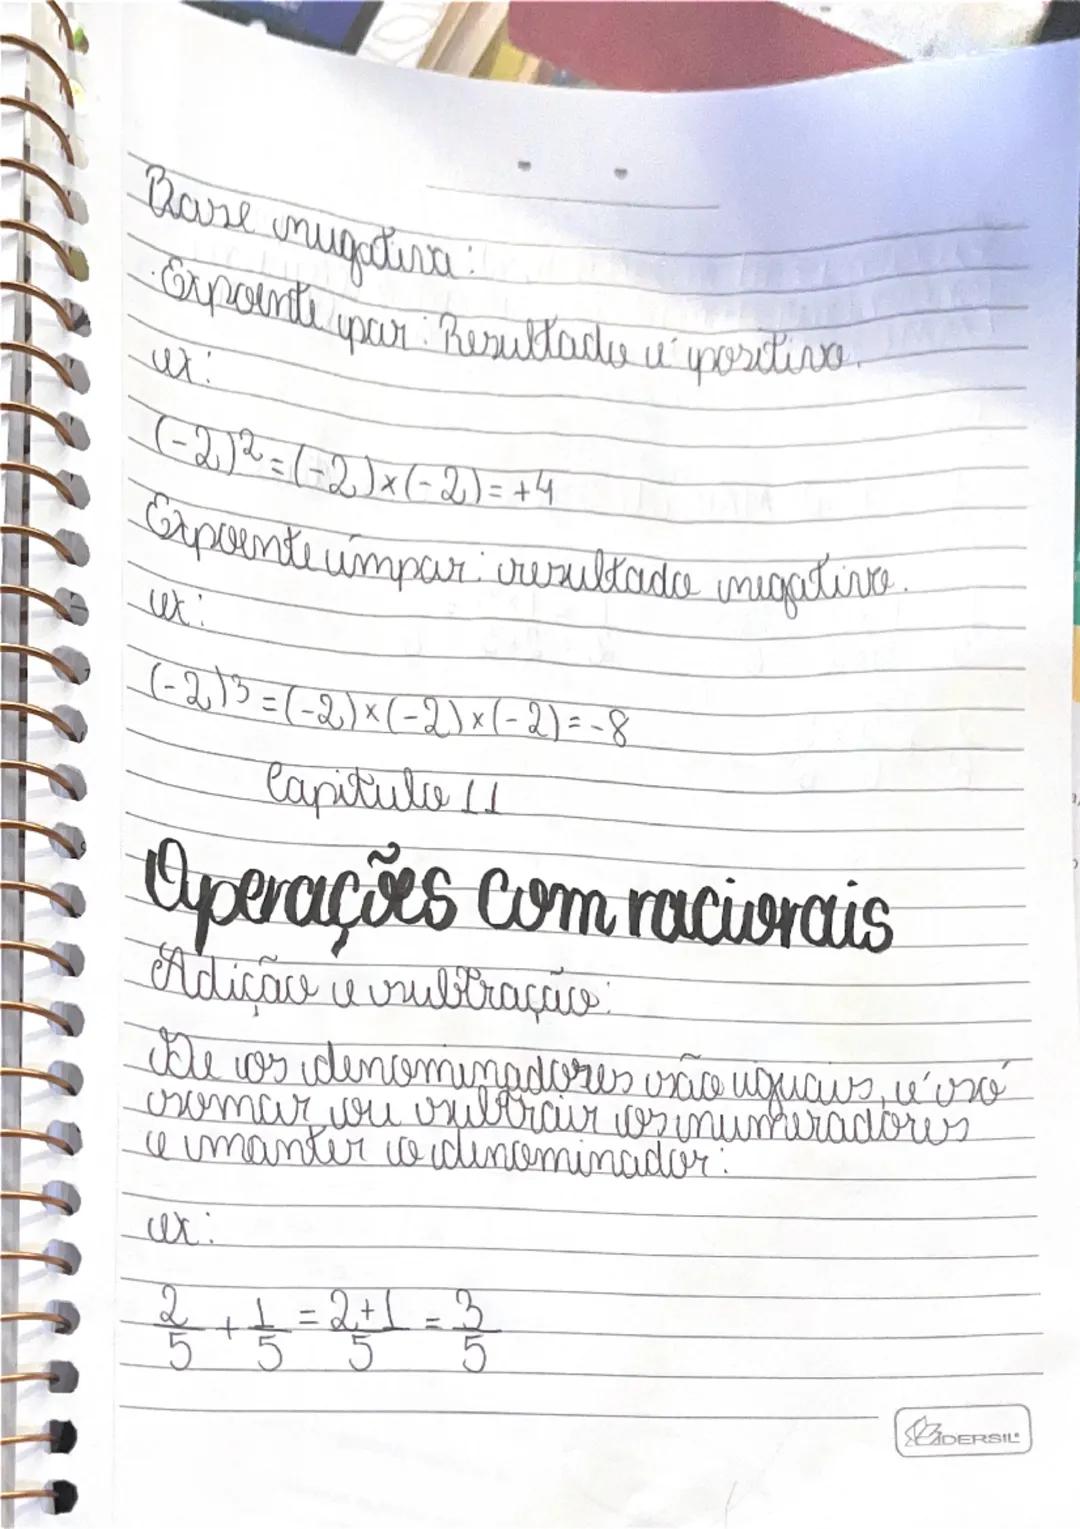 Base negativa:
· Expoente par: Resultado é positivo.
ex:
(-2)² = (-2)×(-2) = +4
Expoente ímpar: resultado negativo.
ex:
(-2)³ = (-2)×(-2)×(-2) = -8
Capitulo 11
Operações com racionais
Adição e subtração:
Se os denominadores são iguais, é só
somar ou subtrair os numeradores
e manter o denominador:
ex:
2/5 + 1/5 = 2+1/5 = 3/5
DERSIL